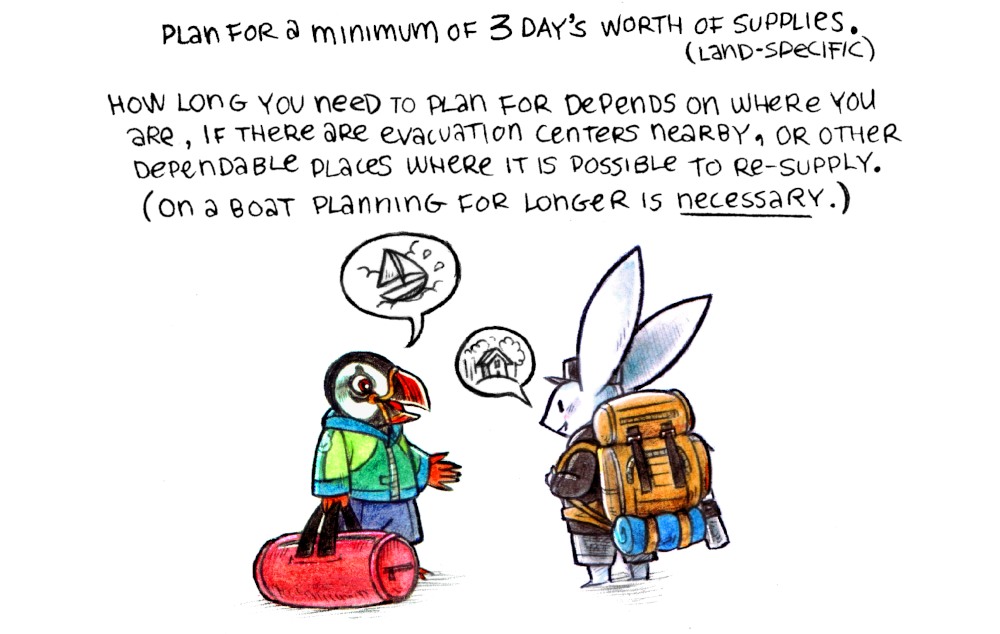 PLAN FOR a MINIMUM OF 3 DAY'S WORTH OF SUPPLIES.
(LAND-SPECIFIC)
HOW LONG YOU NEED TO PLAN FOR DEPENDS ON WHERE YOU
ARE, IF THERE ARE EVACUATION CENTERS NEARBY, OR OTHER
DEPENDABLE PLACES WHERE IT IS POSSIBLE TO RE-SUPPLY.
(ON A BOAT PLANNING FOR LONGER IS NECESSARY.)